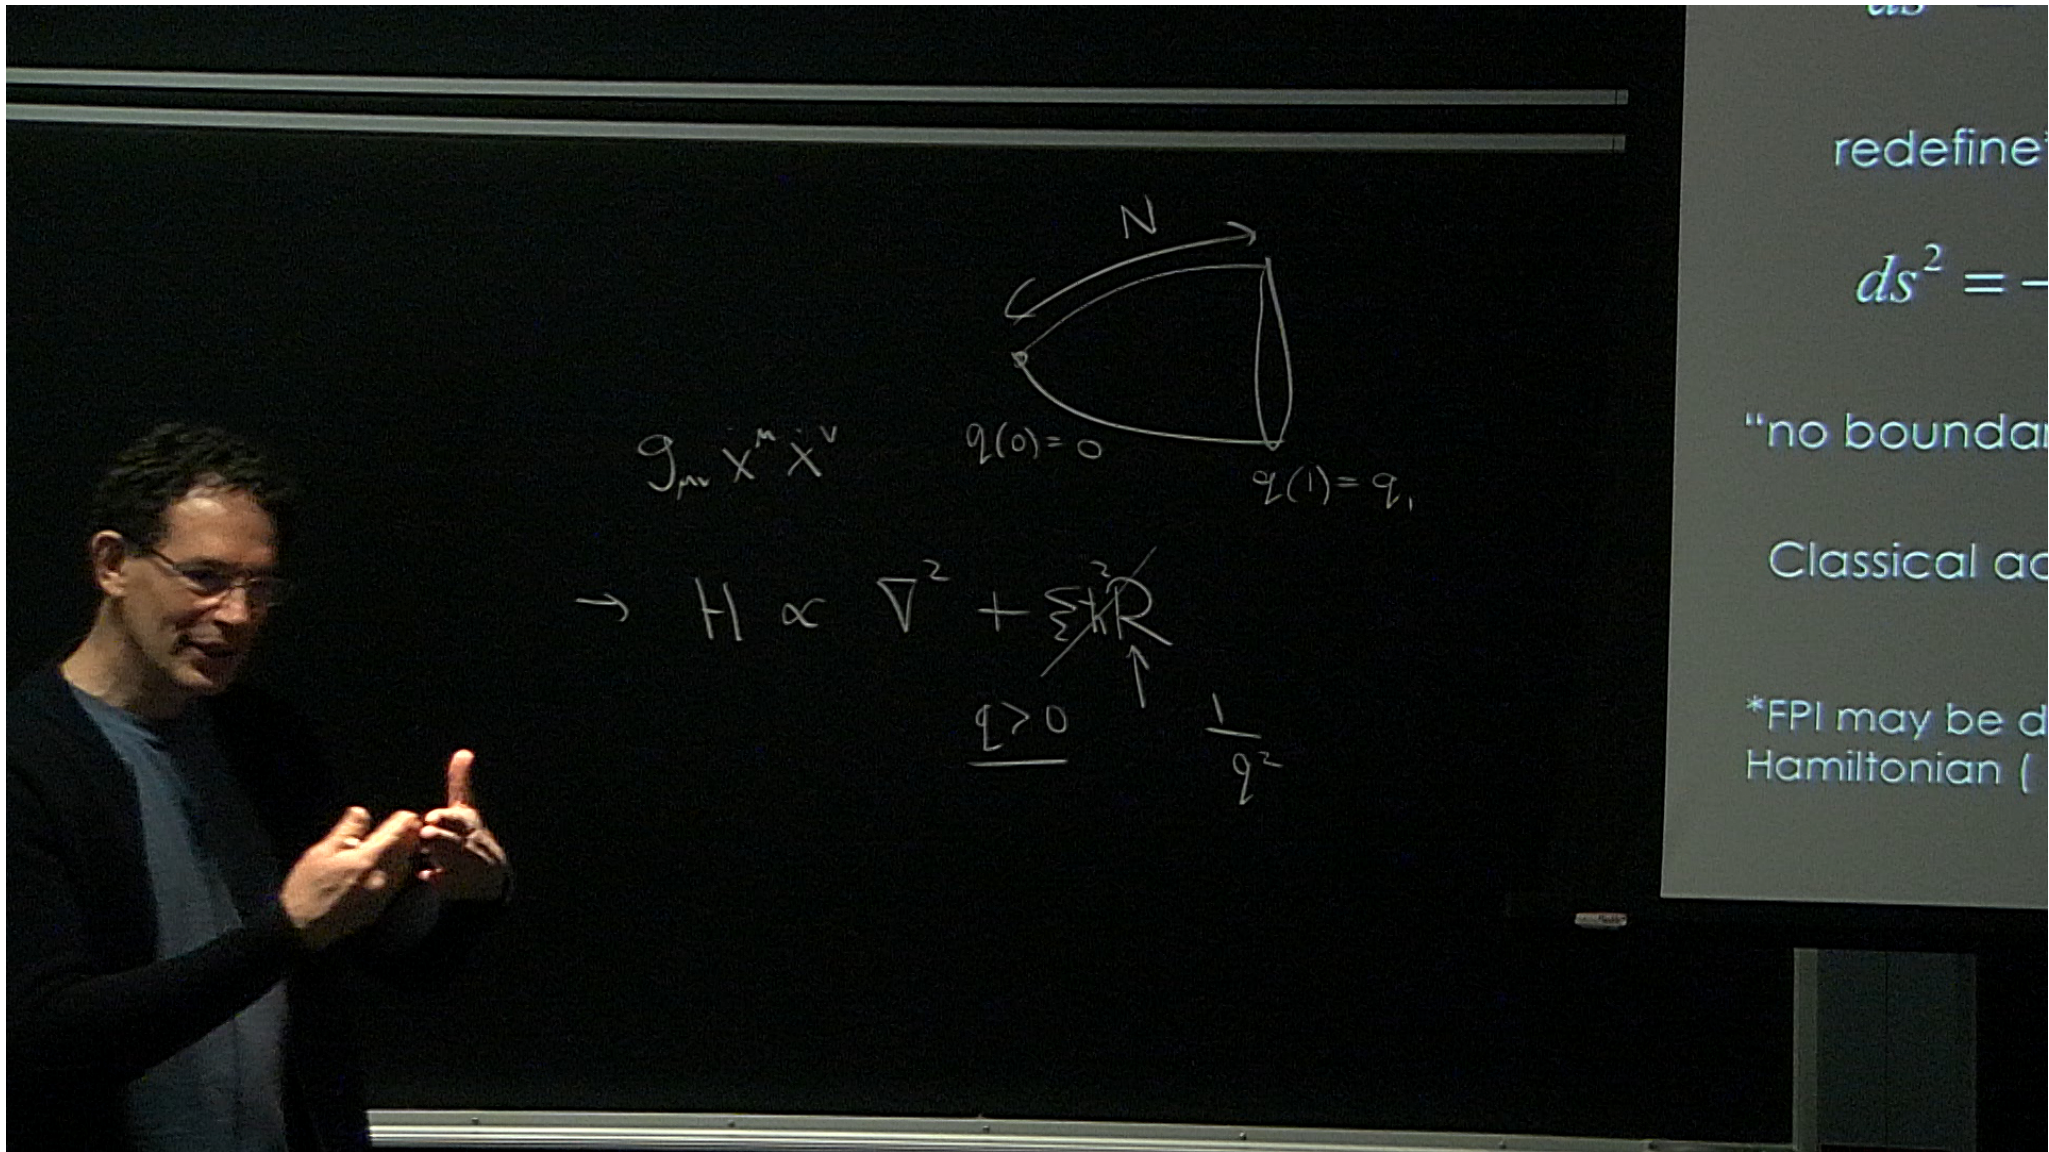 N
q(0) = 0
q(1) = q₁
g_μν ẋ^μ ẋ^ν
→ H ∝ ∇² + ξħ²R
↑
q > 0
1/q²
redefine*
ds² = −
"no bounda
Classical ac
*FPI may be d
Hamiltonian (